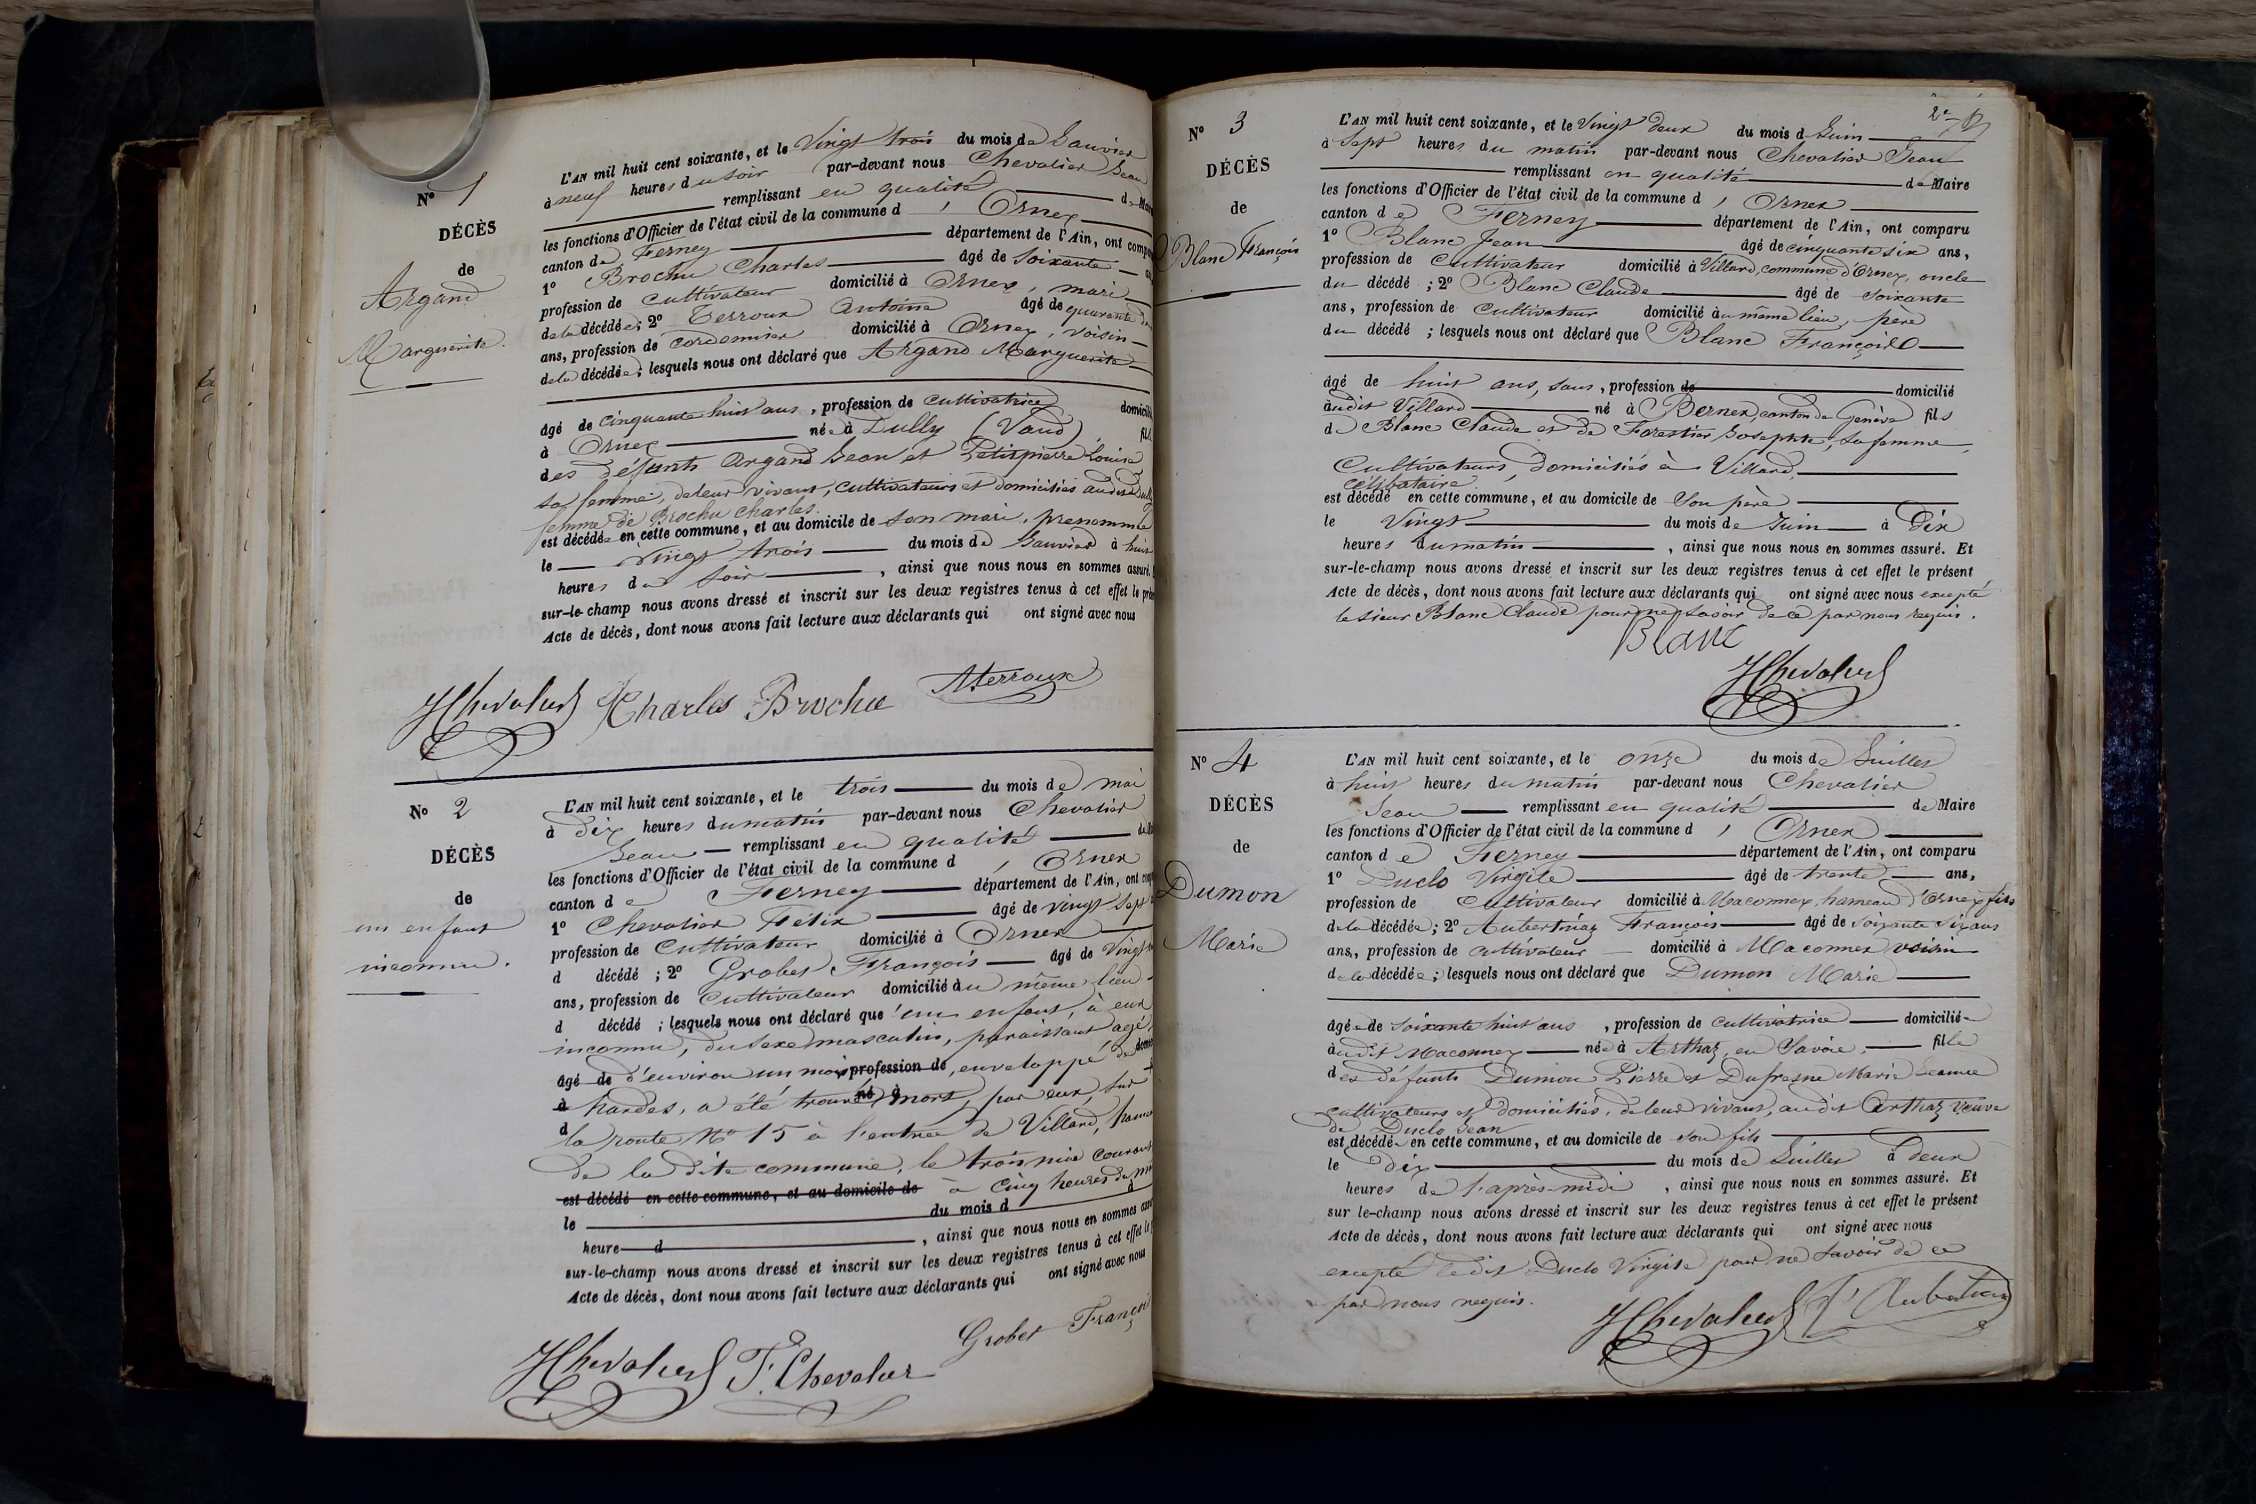 N° 1
DÉCÈS
de
Argand
Marguerite.
L'AN mil huit cent soixante, et le Vingt trois du mois de Janvier
à neuf heures du soir par-devant nous Chevalier Jean
remplissant en qualité de Maire
les fonctions d'Officier de l'état civil de la commune d' Ornex
canton de Ferney département de l'Ain, ont comparu
1° Brochu Charles âgé de soixante
profession de cultivateur domicilié à Ornex, mari
de la décédée; 2° Terroux Antoine âgé de quarante
ans, profession de cordonnier domicilié à Ornex, voisin
de la décédée; lesquels nous ont déclaré que Argand Marguerite
âgé de cinquante huit ans, profession de cultivatrice domicilié
à Ornex née à Lully (Vaud) fil
des défunts Argand Jean et Petitpierre Louise
sa femme, de leur vivant, cultivateurs et domiciliés audit Lully
femme de Brochu Charles.
est décédée en cette commune, et au domicile de son mari, prénommé
le vingt trois du mois de Janvier à huit
heures du soir, ainsi que nous nous en sommes assuré.
sur-le-champ nous avons dressé et inscrit sur les deux registres tenus à cet effet le
Acte de décès, dont nous avons fait lecture aux déclarants qui ont signé avec nous
JChevalier Charles Brochu ATerroux
N° 2
DÉCÈS
de
un enfant
inconnu.
L'AN mil huit cent soixante, et le trois du mois de mai
à dix heures du matin par-devant nous Chevalier
Jean remplissant en qualité de
les fonctions d'Officier de l'état civil de la commune d' Ornex
canton de Ferney département de l'Ain, ont
1° Chevalier Félix âgé de vingt sept
profession de cultivateur domicilié à Ornex
d décédé; 2° Grobet François âgé de vingt
ans, profession de cultivateur domicilié au même lieu
d décédé; lesquels nous ont déclaré que un enfant, à eux
inconnu, du sexe masculin, paraissant agé
âgé de d'environ un mois profession de, enveloppé de
à hardes, a été trouvé né à mort, par eux, sur
d la route N° 15 à l'entrée de Villard,
de la dite commune, le trois mai courant
est décédé en cette commune, et au domicile de à cinq heures du
le du mois d à
heure d, ainsi que nous nous en sommes
sur-le-champ nous avons dressé et inscrit sur les deux registres tenus à cet effet le
Acte de décès, dont nous avons fait lecture aux déclarants qui ont signé avec nous
JChevalier F. Chevalier Grobet François
N° 3
DÉCÈS
de
Blanc François
L'AN mil huit cent soixante, et le Vingt deux du mois d Juin
à sept heures du matin par-devant nous Chevalier Jean
remplissant en qualité de Maire
les fonctions d'Officier de l'état civil de la commune d' Ornex
canton de Ferney département de l'Ain, ont comparu
1° Blanc Jean âgé de cinquante six ans,
profession de cultivateur domicilié à Villard, commune d'Ornex, oncle
du décédé; 2° Blanc Claude âgé de soixante
ans, profession de cultivateur domicilié au même lieu, père
du décédé; lesquels nous ont déclaré que Blanc François
âgé de huit ans, sans, profession de domicilié
audit Villard né à Bernex, canton de Genève fils
de Blanc Claude et de Forestier Josephte, sa femme,
cultivateurs, domiciliés à Villard,
célibataire.
est décédé en cette commune, et au domicile de son père
le Vingt du mois de Juin à Dix
heures du matin, ainsi que nous nous en sommes assuré. Et
sur-le-champ nous avons dressé et inscrit sur les deux registres tenus à cet effet le présent
Acte de décès, dont nous avons fait lecture aux déclarants qui ont signé avec nous excepté
le sieur Blanc Claude pour ne savoir de ce par nous requis.
Blanc
JChevalier
N° 4
DÉCÈS
de
Dumon
Marie
L'AN mil huit cent soixante, et le onze du mois de Juillet
à huit heures du matin par-devant nous Chevalier
Jean remplissant en qualité de Maire
les fonctions d'Officier de l'état civil de la commune d' Ornex
canton de Ferney département de l'Ain, ont comparu
1° Duclo Virgile âgé de trente ans,
profession de cultivateur domicilié à Maconnex, hameau d'Ornex, fils
de la décédée; 2° François âgé de soixante six ans
ans, profession de cultivateur domicilié à Maconnex voisin
de la décédée; lesquels nous ont déclaré que Dumon Marie
âgée de soixante huit ans, profession de cultivatrice domiciliée
audit Maconnex née à Arthaz, en Savoie, fille
des défunts Dumon Pierre et Dufresne Marie Jeanne
cultivateurs et domiciliés, de leur vivant, audit Arthaz veuve
de Duclo Jean
est décédée en cette commune, et au domicile de son fils
le dix du mois de Juillet à deux
heures de l'après-midi, ainsi que nous nous en sommes assuré. Et
sur le-champ nous avons dressé et inscrit sur les deux registres tenus à cet effet le présent
Acte de décès, dont nous avons fait lecture aux déclarants qui ont signé avec nous
excepté ledit Duclo Virgile pour ne savoir de ce
par nous requis.
JChevalier